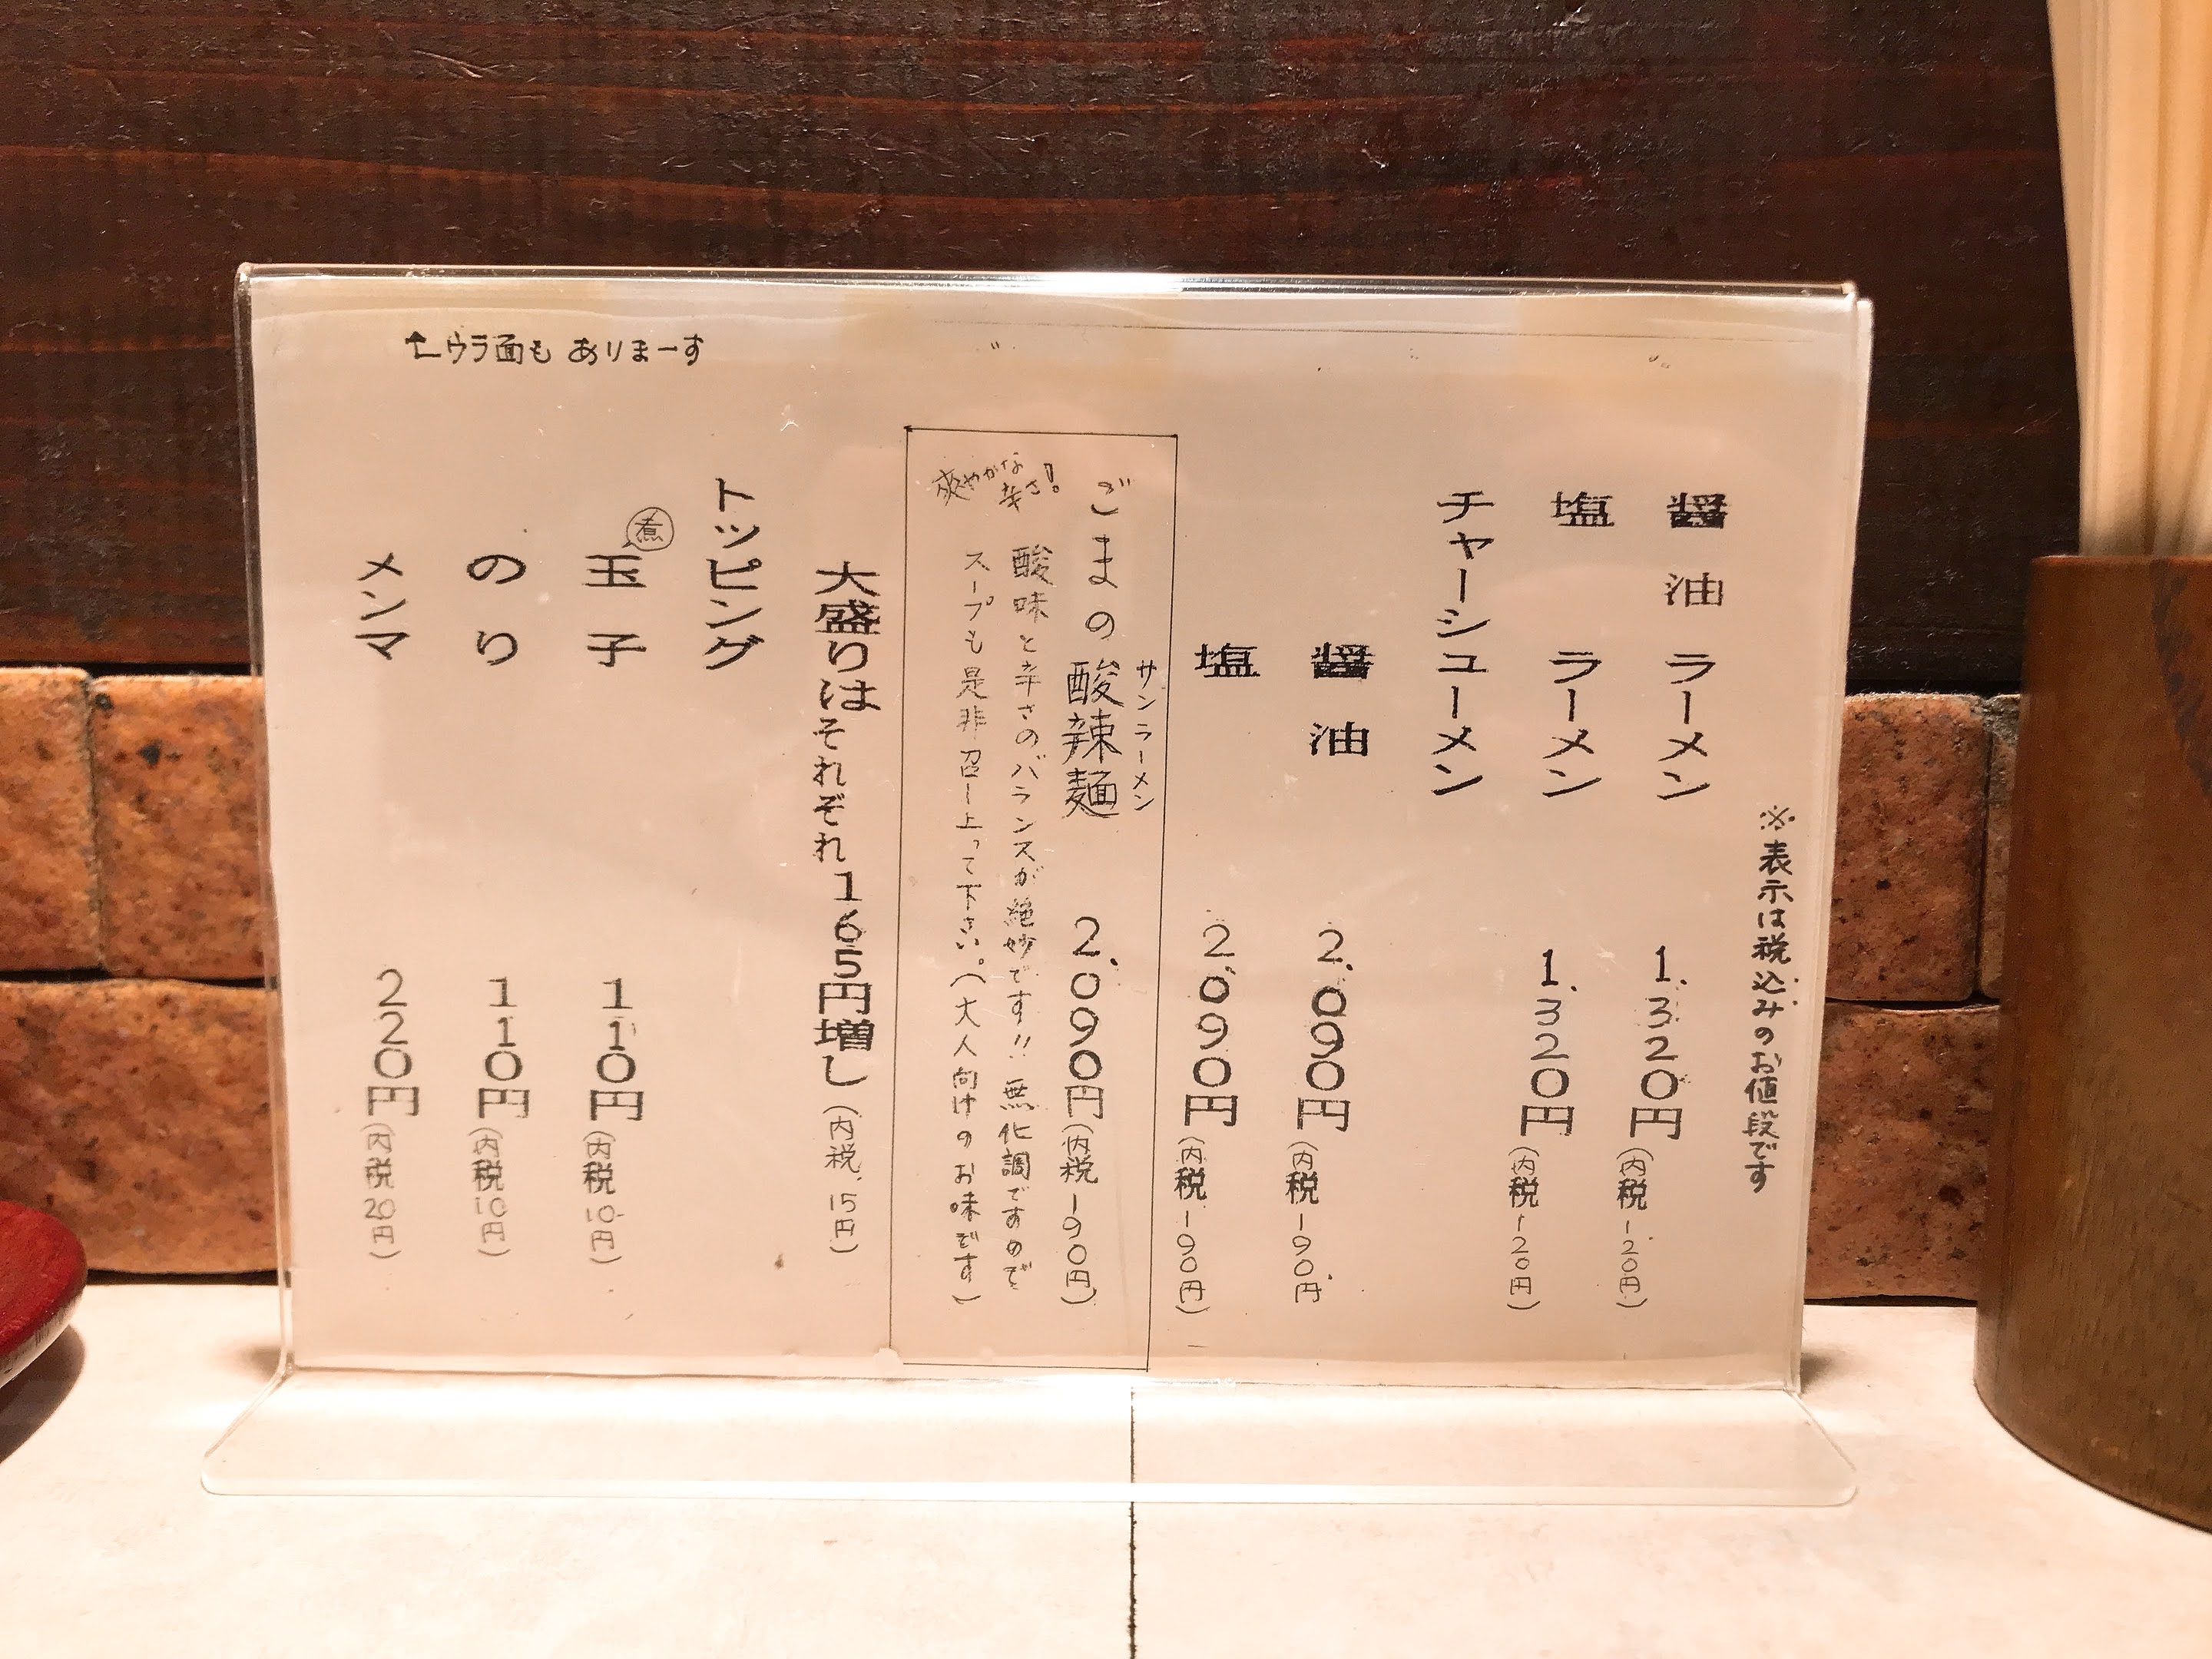 ※表示は税込みのお値段です
醤油ラーメン 1.320円(内税120円)
塩ラーメン 1.320円(内税120円)
チャーシューメン
醤油 2.090円(内税190円
塩 2.090円(内税190円)
サンラーメン
ごまの酸辣麺 2.090円(内税190円)
爽やかな辛さ!
酸味と辛さのバランスが絶妙です!! 無化調ですので
スープも是非召し上って下さい。(大人向けのお味です)
大盛りはそれぞれ165円増し(内税15円)
トッピング
煮玉子 110円(内税10円)
のり 110円(内税10円)
メンマ 220円(内税20円)
↰ウラ面も ありまーす